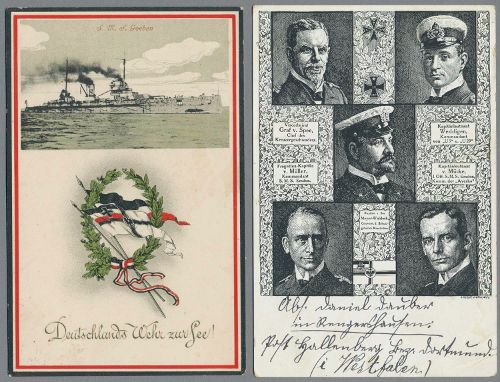 S. M. S. Goeben
Deutschlands Wehr zur See!
Vizeadmiral
Graf v. Spee,
Chef des
Kreuzergeschwaders
Kapitänleutnant
Weddigen,
Kommandant
von „U9“ u. „U29“
Fregatten-Kapitän
v. Müller,
Kommandant
S. M. S. Emden
Kapitänleutnant
v. Mücke,
Off. S. M. S. Emden,
Komm. der „Ayesha“
Kapitän z. See
Meyer-Waldeck,
Abs. Daniel Dauber
in Rengershausen.
Post Hallenberg Bez. Dortmund
(i Westfalen.)